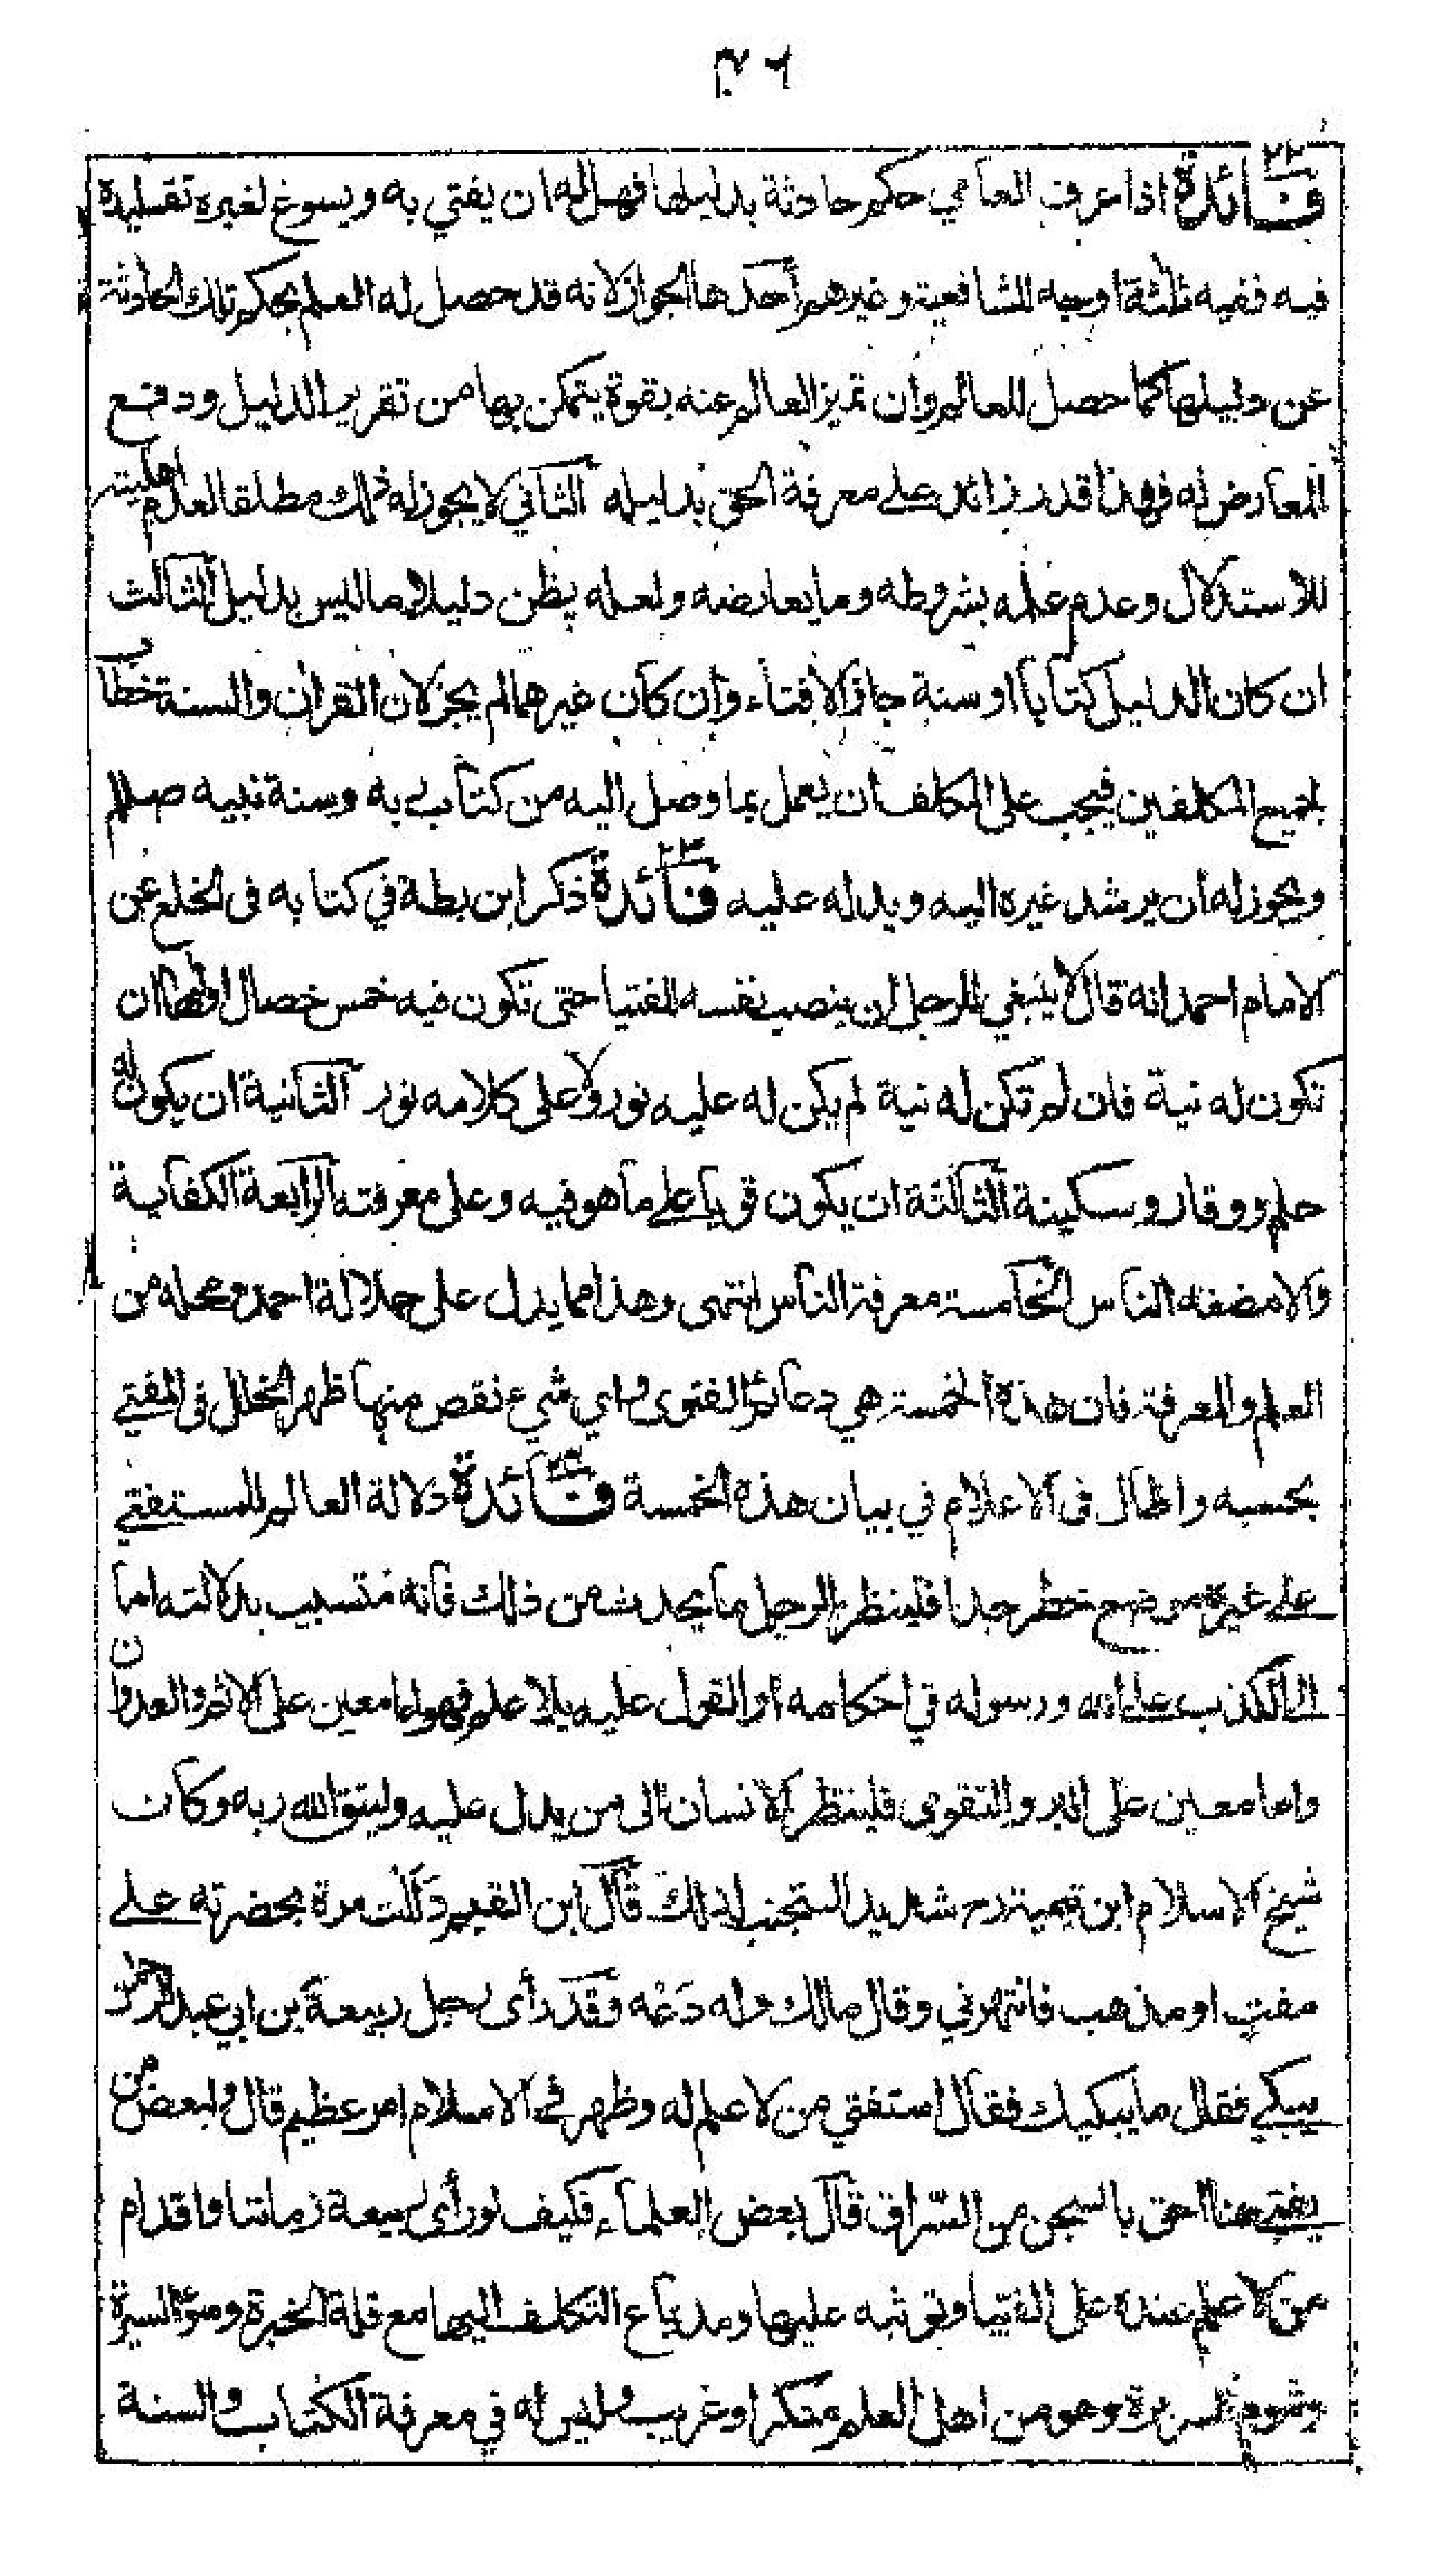 ٣٦
٢٢
فائدة اذا عرف العامي حكم حادثة بدليلها فهل له ان يفتي به ويسوغ لغيره تقليده
فيه ففيه ثلثة اوجه للشافعية وغيرهم أحدها الجواز لانه قد حصل له العلم بحكم تلك الحادثة
عن دليلها كما حصل للعالم وان تميز العالم عنه بقوة يتمكن بها من تقرير الدليل ودفع
المعارض له فهذا قدر زائد على معرفة الحق بدليله الثاني لا يجوز له ذلك مطلقا لعدم اهليته
للاستدلال وعدم علمه بشروطه وما يعارضه ولعله يظن دليلا ما ليس بدليل الثالث
ان كان الدليل كتابا او سنة جاز الافتاء وان كان غيرهما لم يجز لان القران والسنة خطاب
لجميع المكلفين فيجب على المكلف ان يعمل بما وصل اليه من كتاب ربه وسنة نبيه صللم
ويجوز له ان يرشد غيره اليه ويدله عليه ٢٣ فائدة ذكر ابن بطة في كتابه فى الخلع عن
الامام احمد انه قال لا ينبغي للرجل ان ينصب نفسه للفتيا حتى تكون فيه خمس خصال اولها ان
تكون له نية فان لم تكن له نية لم يكن له عليه نور ولا على كلامه نور الثانية ان يكون له
حلم ووقار وسكينة الثالثة ان يكون قويا على ما هو فيه وعلى معرفته الرابعة الكفاية
والا مضغه الناس الخامسة معرفة الناس انتهى وهذا مما يدل على جلالة احمد ومحله من
العلم والمعرفة فان هذه الخمسة هي دعائم الفتوى واي شيء نقص منها ظهر الخلل فى المفتي
بحسبه واطال فى الاعلام في بيان هذه الخمسة ٢٤ فائدة دلالة العالم للمستفتي
على غيره موضع خطر جدا فلينظر الرجل ما يحدث من ذلك فانه متسبب بدلالته اما
الى الكذب على الله ورسوله في احكامه او القول عليه بلا علم فهو اما معين على الاثم والعدوان
واما معين على البر والتقوى فلينظر الانسان الى من يدل عليه وليتق الله ربه وكان
شيخ الاسلام ابن تيمية رح شديد التجنب لذلك قال ابن القيم دَلَلْت مرة بحضرته على
مفتٍ او مذهب فانتهرني وقال مالك وله دَعْه وقد رأى رجل ربيعة بن ابي عبد الرحمن
يبكي فقال ما يبكيك فقال استفتي من لا علم له وظهر في الاسلام امر عظيم قال ولبعض من
يفتي هنا احق بالسجن من السّراق قال بعض العلماء فكيف لو رأى ربيعة زماننا واقدام
من لا علم عنده على الفتيا وتوثبه عليها ومد باع التكلف اليها مع قلة الخبرة وسوء السيرة
وشوم السريرة وهو من اهل العلم منكر او غريب وليس له في معرفة الكتاب والسنة